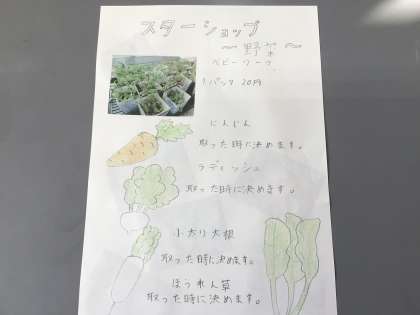 スターショップ
～野菜～
ベビーリーフ
1パック 20円
にんじん
取った時に決めます。
ラディッシュ
取った時に決めます。
小太り大根
取った時に決めます。
ほうれん草
取った時に決めます。